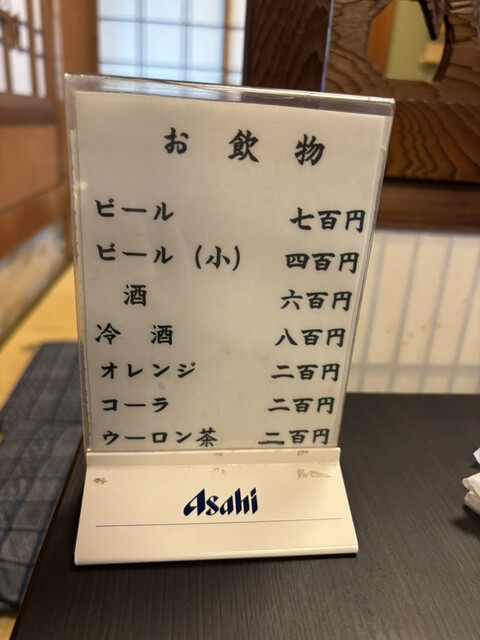 お飲物
ビール 七百円
ビール (小) 四百円
酒 六百円
冷酒 八百円
オレンジ 二百円
コーラ 二百円
ウーロン茶 二百円
Asahi